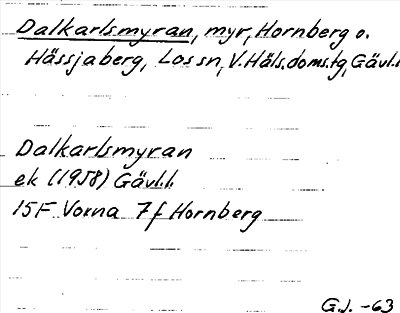 Dalkarlsmyran, myr, Hornberg o.
Hässjaberg, Los sn, V.Häls.doms.tg, Gävl.l.
Dalkarlsmyran
ek (1958) Gävl.l.
15F Voxna 7f Hornberg
G.J. -63